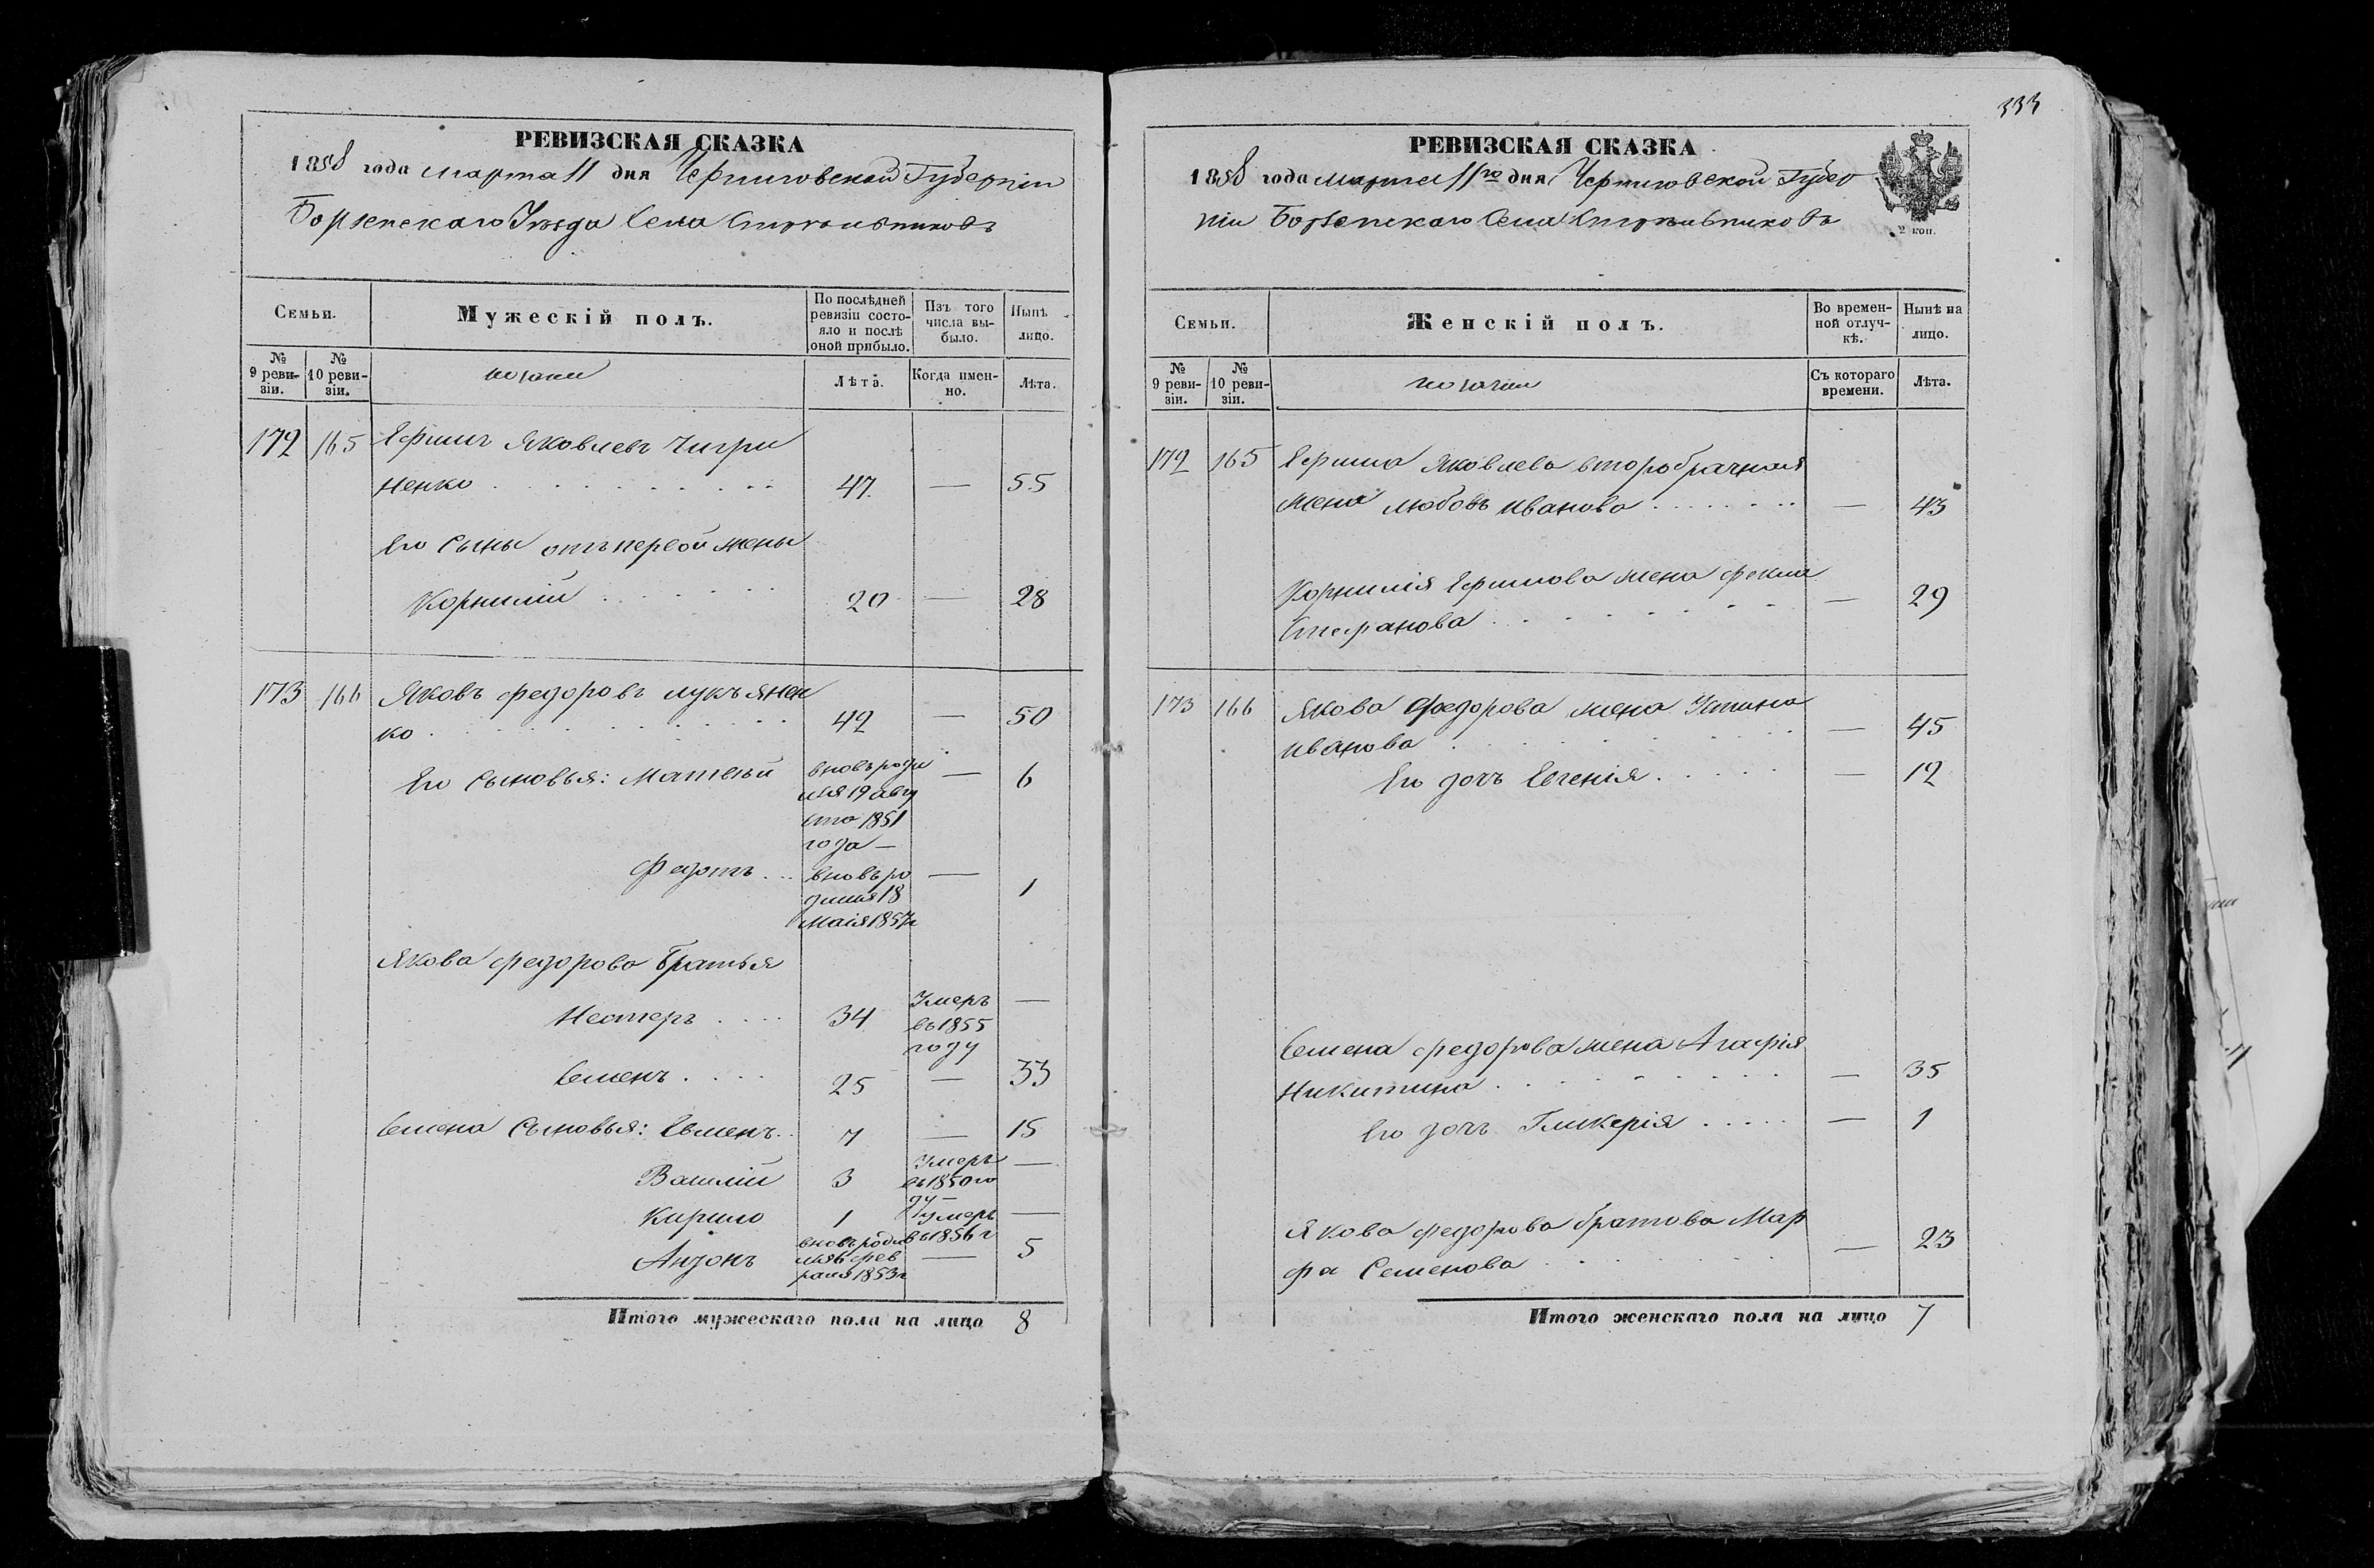 РЕВИЗСКАЯ СКАЗКА
1858 года марта 11 дня Черниговской Губерніи
Борзенскаго Уѣзда Села Стрѣльниковъ
Семьи.
Мужескій полъ.
По послѣдней ревизіи состояло и послѣ оной прибыло.
Изъ того числа выбыло.
Нынѣ лицо.
№ 9 ревизіи.
№ 10 ревизіи.
козаки
Лѣта.
Когда именно.
Лѣта.
172 165 Ефимъ Яковлевъ Чигри
ненко 47. — 55
Его Сыны отъ первой жены
Корнилій 20 — 28
173 166 Яковъ Федоровъ Лукъянен
ко 42 — 50
Его Сыновья: Матвѣй вновь роди — 6
лся 19 авгу
ста 1851
года —
Федотъ вновь ро — 1
дился 18
Маія 1857 г
Якова Федорова Братья
Нестеръ 34 Умеръ —
въ 1855
году
Семенъ 25 — 33
Семена Сыновья: Евменъ 7 — 15
Василій 3 Умеръ —
въ 1850 го
ду —
Кирило 1 Умеръ —
въ 1856 г
Антонъ вновь роди — 5
лся 6 фев
раля 1853 г
Итого мужескаго пола на лицо 8
333
РЕВИЗСКАЯ СКАЗКА
1858 года марта 11го дня Черниговской Губер
ніи Борзенскаго Села Стрѣльниковъ
2 коп.
Семьи.
Женскій полъ.
Во временной отлучкѣ.
Нынѣ на лицо.
№ 9 ревизіи.
№ 10 ревизіи.
козачки
Съ котораго времени.
Лѣта.
172 165 Ефима Яковлева второбрачная
жена Любовь Иванова — 43
Корнилія Ефимова жена Фекла
Стефанова — 29
173 166 Якова Федорова жена Устина
Иванова — 45
Его дочь Евгенія — 12
Семена Федорова жена Агафія
Никитина — 35
Его дочь Гликерія — 1
Якова Федорова братова Мар
фа Семенова — 23
Итого женскаго пола на лицо 7